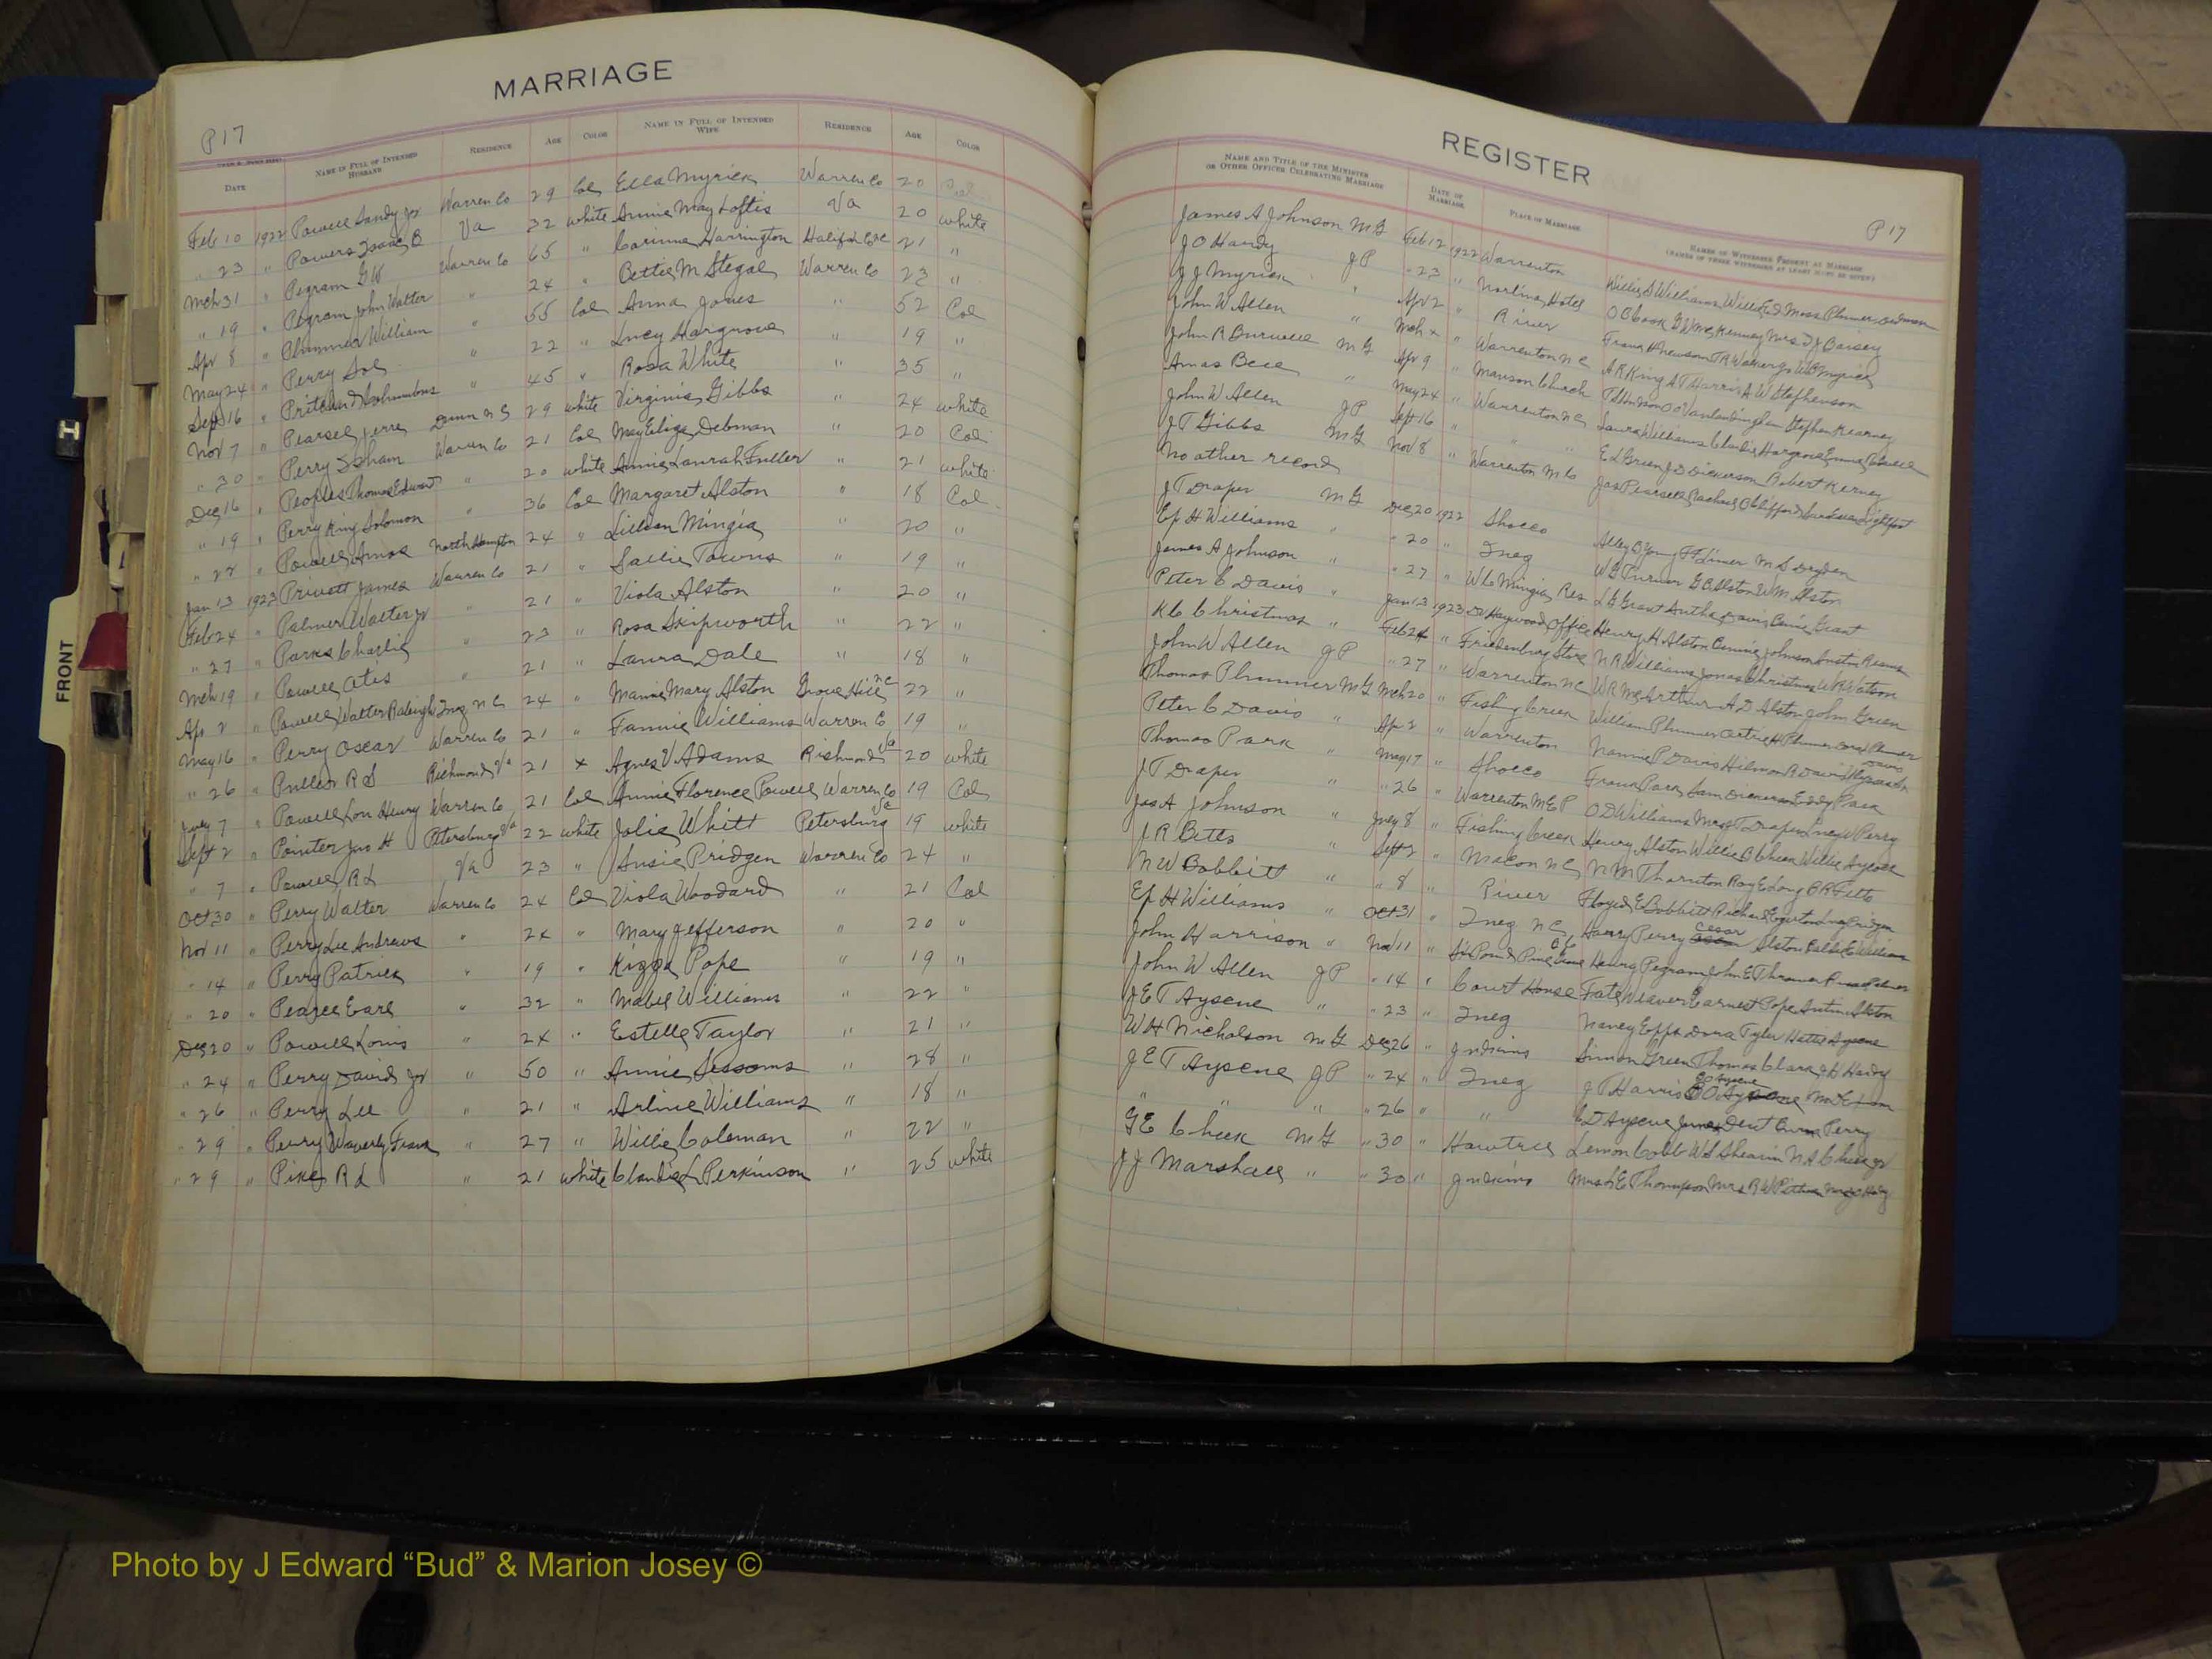 MARRIAGE
P 17
DATE NAME IN FULL OF INTENDED HUSBAND RESIDENCE AGE COLOR NAME IN FULL OF INTENDED WIFE RESIDENCE AGE COLOR
Feb 10 1922 Powell Sandy Jr Warren Co 29 Col Ella Myrick Warren Co 20 Col
" 23 " Powers Isaac B Va 32 white Annie May Loftis Va 20 white
Mch 31 " Pegram G W Warren Co 65 " Corinne Harrington Halifax Co NC 21 "
" 19 " Pegram John Walter " 24 " Bettie M Stegall Warren Co 23 "
Apr 8 " Plummer William " 55 Col Anna Jones " 52 Col
May 24 " Perry Sol " 22 " Lucy Hargrove " 19 "
Sept 16 " Pritchard Columbus " 45 " Rosa White " 35 "
Nov 7 " Pearsel Jerre Dunn N C 29 white Virginia Gibbs " 24 white
" 30 " Perry Warren Co 21 Col May Eliza Debman " 20 Col
Dec 16 " Peoples Thomas Edward " 20 white Annie Laurah Fuller " 21 white
" 19 " Perry King Solomon " 36 Col Margaret Alston " 18 Col
" 22 " Powell Amos North Hampton 24 " Lillian Mingia " 20 "
Jan 13 1923 Privott James Warren Co 21 " Sallie Towns " 19 "
Feb 24 " Palmer Walter Jr " 21 " Viola Alston " 20 "
" 27 " Parks Charlie " 23 " Rosa Skipworth " 22 "
Mch 19 " Powell Otis " 21 " Laura Dale " 18 "
Apr 2 " Powell Walter Raleigh Ineg N C 24 " Mamie Mary Alston Grove Hill NC 22 "
May 16 " Perry Oscar Warren Co 21 " Fannie Williams Warren Co 19 "
" 26 " Pullen R S Richmond Va 21 x Agnes V Adams Richmond Va 20 white
July 7 " Powell Lon Henry Warren Co 21 Col Annie Florence Powell Warren Co 19 Col
Sept 2 " Pointer Jno H Petersburg Va 22 white Jolie Whitt Petersburg Va 19 white
" 7 " Powell R L Va 23 " Susie Pridgen Warren Co 24 "
Oct 30 " Perry Walter Warren Co 24 Col Viola Woodard " 21 Col
Nov 11 " Perry Lee Andrews " 24 " Mary Jefferson " 20 "
" 14 " Perry Patrick " 19 " Kizza Pope " 19 "
" 20 " Pearce Earl " 32 " Mabel Williams " 22 "
Dec 20 " Powell Louis " 24 " Estelle Taylor " 21 "
" 24 " Perry David Jr " 50 " Annie Sessoms " 28 "
" 26 " Perry Lee " 21 " Arline Williams " 18 "
" 29 " Perry Waverly Frank " 27 " Willie Coleman " 22 "
" 29 " Pike R L " 21 white Claudie L Perkinson " 25 white
REGISTER
P 17
NAME AND TITLE OF THE MINISTER OR OTHER OFFICER CELEBRATING MARRIAGE DATE OF MARRIAGE PLACE OF MARRIAGE NAMES OF WITNESSES PRESENT AT MARRIAGE
James A Johnson M G Feb 12 1922 Warrenton Willie S Williams Willie E J Moss Plummer
J O Hardy J P " 23 " Norlina Hotel O C Cook G W McKenney Mrs D J Carsey
J J Myrick " Apr 2 " River Frank H Newsom J R Walker Jr W B Myrick
John W Allen " Mch x " Warrenton N C A R King A T Harris A W Stephenson
John R Burwell M G Apr 9 " Manson Church Stephen Kearney
Amas Bell " May 24 " Warrenton N C Laura Williams Claudie Hargrove Emma
John W Allen J P Sept 16 " " E L Green J D Dickerson Robert Kerney
J T Gibbs M G Nov 8 " Warrenton Jas Pearsel Rachael Clifford Lightfoot
No other record
J T Draper M G Dec 20 1922 Shocco Alley B Young F F Limer M S Dryden
Ep H Williams " " 20 " Ineg W G Turner G B Alston W M Alston
James A Johnson " " 27 " W C Mingia Res L B Grant Bertha Davis Annie Grant
Peter C Davis " Jan 13 1923 Dr Haywood Office Henry H Alston Johnson Austin Reams
K C Christmas " Feb 24 " Friedenburg Store N R Williams Jonas Christmas W H Watson
John W Allen J P " 27 " Warrenton N C W R McArthur A D Alston John Green
Thomas Plummer M G Mch 20 " Fishing Creek William Plummer Plummer Plummer
Peter C Davis " Apr 2 " Warrenton Nannie P Davis Hilmon R Davis
Thomas Park " May 17 " Shocco Frank Park Sam Dickerson Eddy Park
J T Draper " " 26 " Warrenton M E P O D Williams Mrs J T Draper Lucy W Perry
Jas A Johnson " July 8 " Fishing Creek Henry Alston Willie B Cheek Willie Aycock
J R Betts " Sept 2 " Macon N C N M Thornton Roy E Long B R Fitts
N W Bobbitt " " 8 " River Floyd E Bobbitt Richard Egerton Pridgen
Ep H Williams " Oct 31 " Ineg N C Harry Perry Cesar Alston Callie E Williams
John Harrison " Nov 11 " Six Pound Henry Pegram John E
John W Allen J P " 14 " Court House Fate Weaver Earnest Pope Alston
J E T Aycock " " 23 " Ineg Nancy Epps Dora Tyler Hattie Aycock
W H Nicholson M G Dec 26 " Judkins Simon Green Thomas Clark J H Hardy
J E T Aycock J P " 24 " Ineg J T Harris
" " " " 26 " " Perry
G E Cheek M G " 30 " Hawtree Lemon Cobb W S Shearin N A Cheek Jr
J J Marshall " " 30 " Judkins Mrs L E Thompson Mrs R W
FRONT
Photo by J Edward “Bud” & Marion Josey ©